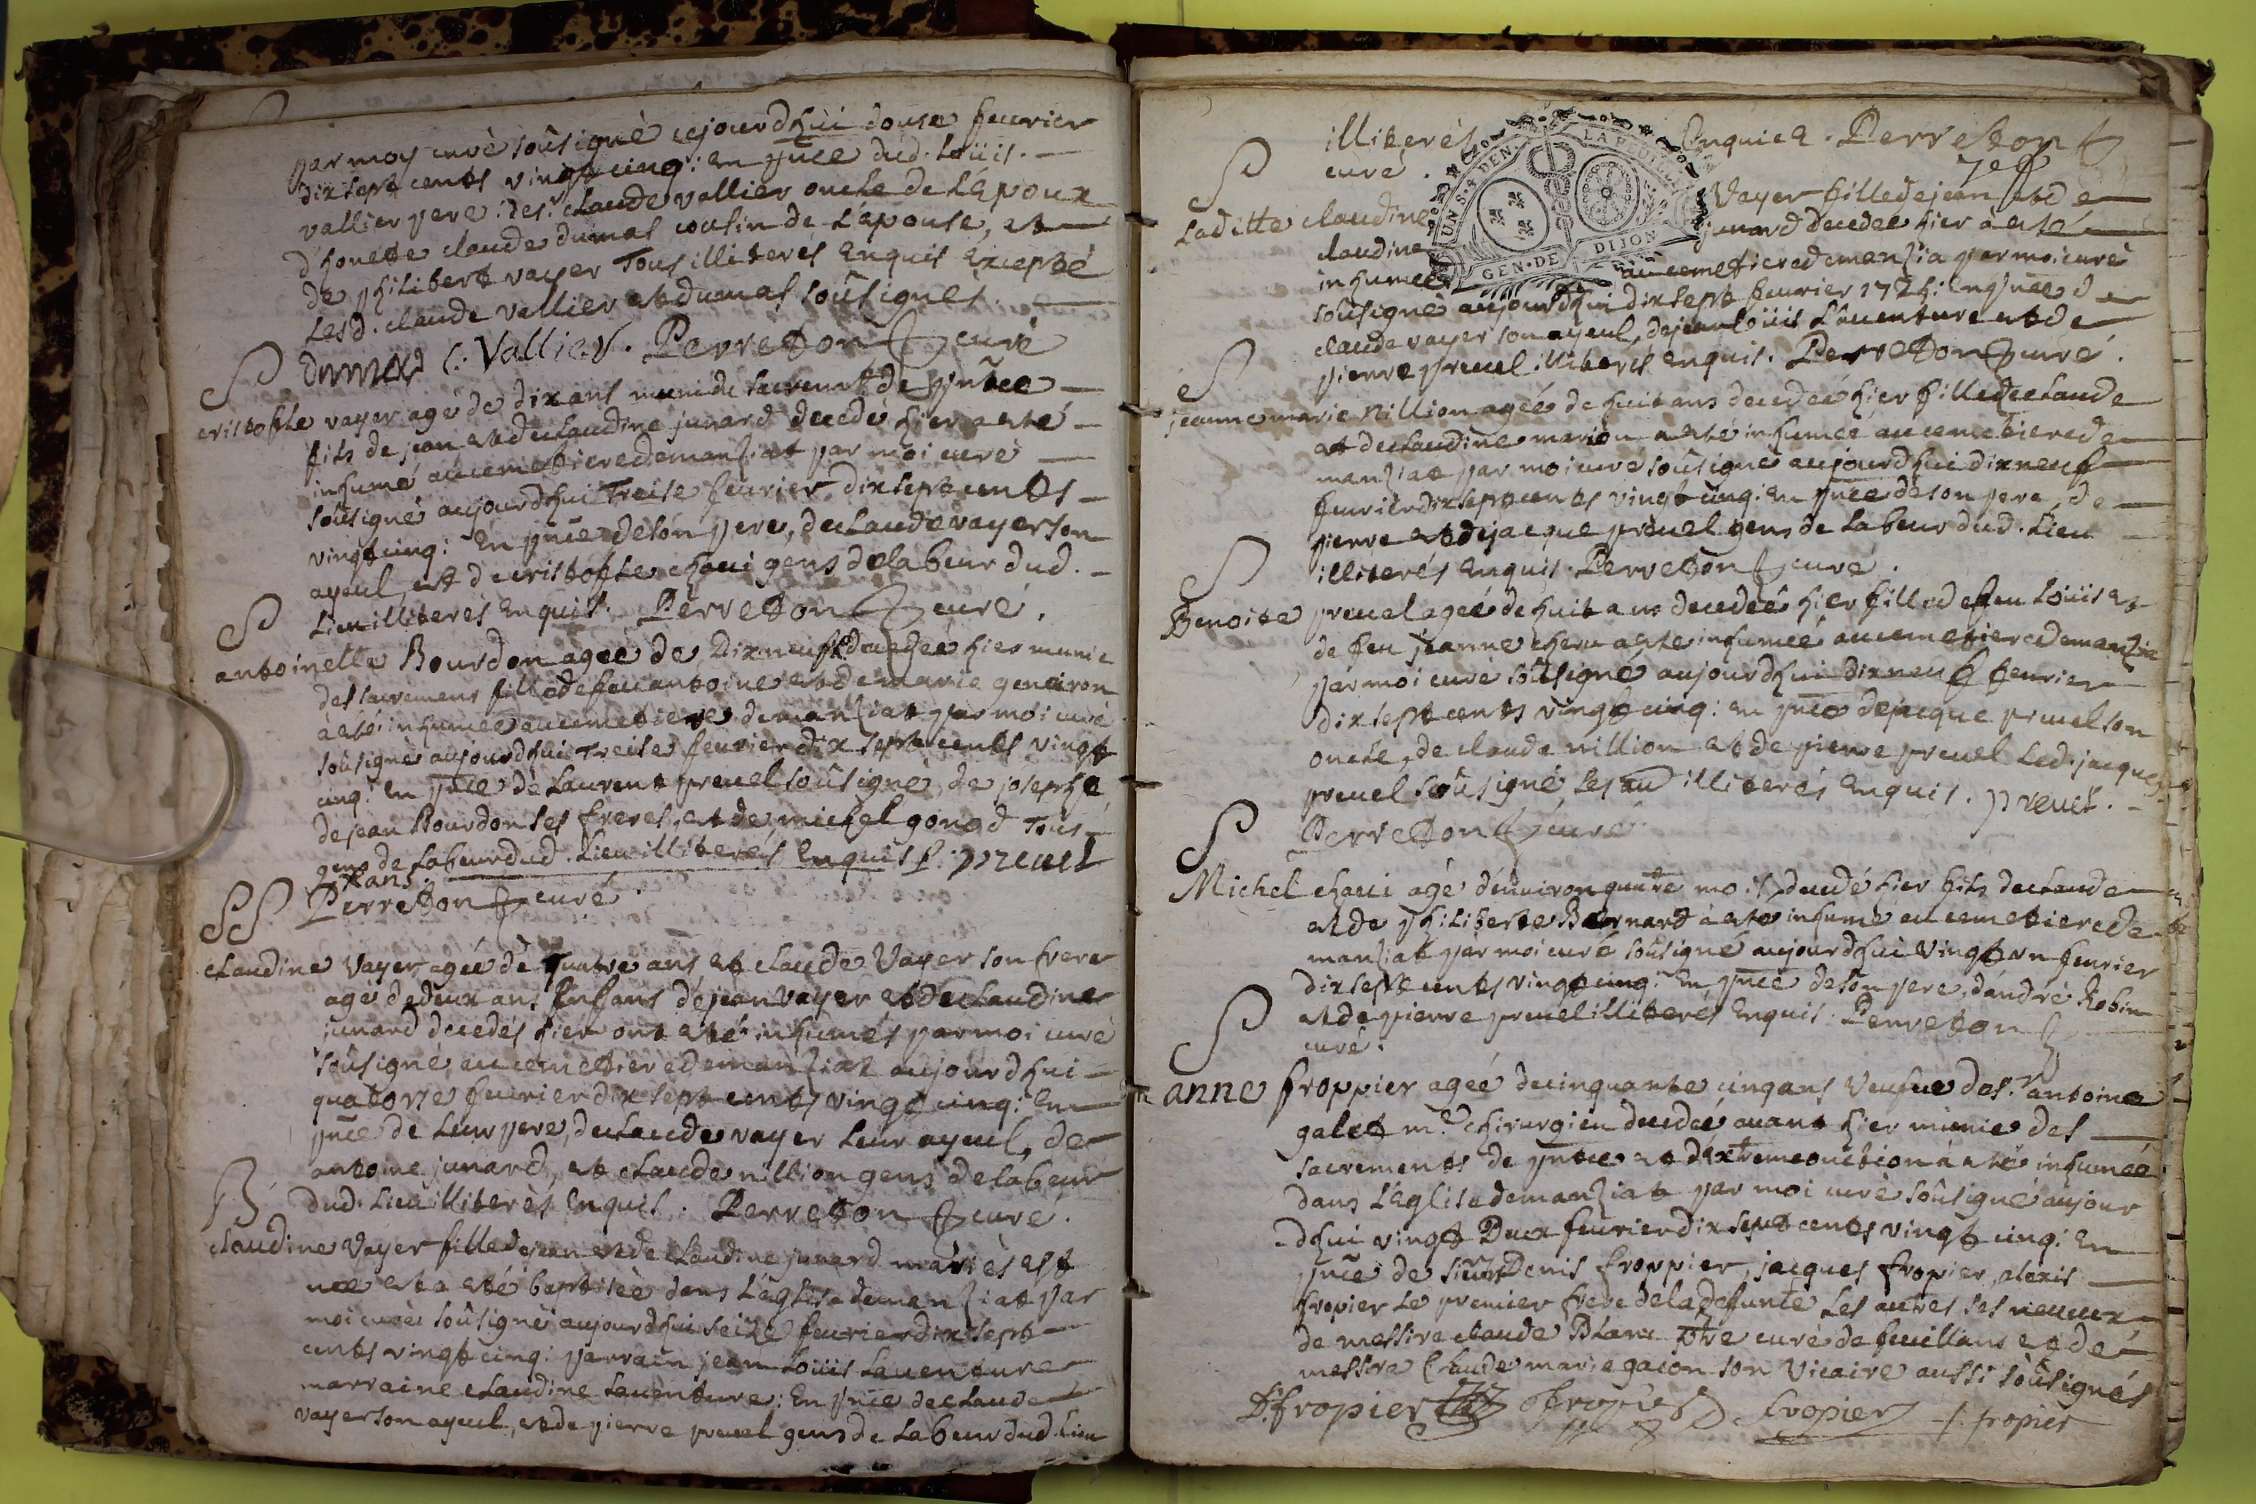 par moy curé soûsigné aujourdhui douse feurier
dix sept cents vingt cinq: en pñce dud. Loüis
vallier pere: des.r claude vallier oncle de L'epoux
d'honete claude dumas cousin de L'epouse, et
de philibert vayer Tous illiteres Enquis Excepté
Lesd. claude vallier et dumas soûsignés.
Dumas C: Vallier. Perredon curé
S
cristofle vayer agé de dix ans muni du sacremt de pñtce
fils de jean et de claudine junard decedé hier a eté
inhumé au cemetiere de manziat par moi curé
soûsigné aujourdhui Treise feurier dix sept cents
vingt cinq: En pñce de son pere, de claude vayer son
ayeul, et de cristofle chavi gens de labeur dud.
Lieu illiterés Enquis. Perredon curé.
S
antoinette Bourdon ageé de Dix neuf decedeé hier munie
des sacremens fille de feu antoine et de marie
à eté inhumeé au cemetiere de manziat par moi curé
soûsigné aujourdhui Treise feurier dix sept cents vingt
cinq: En pñce de Laurent preuel soûsigné, de josephe,
de jean Bourdon ses freres, et de michel gonod Tous
gens de Labeur dud. Lieu illiterés Enquis L: preuel
ans.
Perredon curé.
SS
claudine Vayer ageé de quatre ans et claude Vayer son frere
agé de deux ans Enfans de jean vayer et de claudine
junard decedés hier ont eté inhumés par moi curé
soûsigné au cemetiere de manziat aujourdhui
quatorze feurier dix sept cents vingt cinq: En
pñce de Leur pere, de claude vayer Leur ayeul, de
antoine junard, et claude nillion gens de labeur
dud. Lieu illiterés Enquis. Perredon curé.
B
claudine Vayer fille de jean et de claudine junard mariés est
neé et a eté baptiseé dans L'eglise de manziat par
moi curé soûsigné aujourdhui seize feurier dix sept
cents vingt cinq: parrain jean Loüis Lauenture
marraine claudine Lauenture: En pñce de claude
vayer son ayeul, et de pierre preuel gens de Labeur dud. Lieu
illiterés Enquis. Perredon
curé.
UN S. 4 DEN. LA F.
GEN. DE DIJON
S
Laditte claudine Vayer fille de jean et de
claudine junard decedeé hier à eté
inhumeé au cemetiere de manzia par moi curé
soûsigné aujourdhui dix sept feurier 1725: En pñce de
claude vayer son ayeul, de jean Loüis Lauenture et de
pierre preuel illiterés Enquis. Perredon curé.
S
jeanne marie nillion ageé de huit ans decedeé hier fille de claude
et de claudine marion a eté inhumeé au cemetiere de
manziat par moi curé soûsigné aujourdhui dix neuf
feurier dix sept cents vingt cinq: En pñce de son pere, de
pierre et de jacque preuel gens de Labeur dud. Lieu
illiterés Enquis. Perredon curé.
S
Benoite preuel ageé de huit ans decedeé hier fille de feu Loüis et
de feu jeanne a eté inhumeé au cemetiere de manzia
par moi curé soûsigné aujourdhui dix neuf feurier
dix sept cents vingt cinq: En pñce de jacque preuel son
oncle, de claude nillion et de pierre preuel Led. jacque
preuel soûsigné Les au illiterés Enquis. preuel.
Perredon curé
S
Michel chavi agé d'enuiron quatre mois decedé hier fils de claude
et de philiberte Bernard à eté inhumé au cemetiere de
manziat par moi curé soûsigné aujourdhui vingt un feurier
dix sept cents vingt cinq: En pñce de son pere, d'andré Robin
et de pierre preuel illiterés Enquis. Perredon
curé.
S
anne froppier ageé de cinquante cinq ans Veufue de s.r antoine
galet m.e chirurgien decedeé auant hier munie des
sacrements de pñtce et d'extremeonction à eté inhumeé
dans L'eglise de manziat par moi curé soûsigné aujour
dhui vingt Deux feurier dix sept cents vingt cinq: En
pñce de sieur Denis froppier, jacques fropier, alexis
fropier Le premier frere de la defunte Les autres ses neueux
de messire claude Blanc ptre curé de feuillans et de
messire Claude marie gacon son Vicaire aussi soûsignés
D. fropier fropier fropier J. fropier